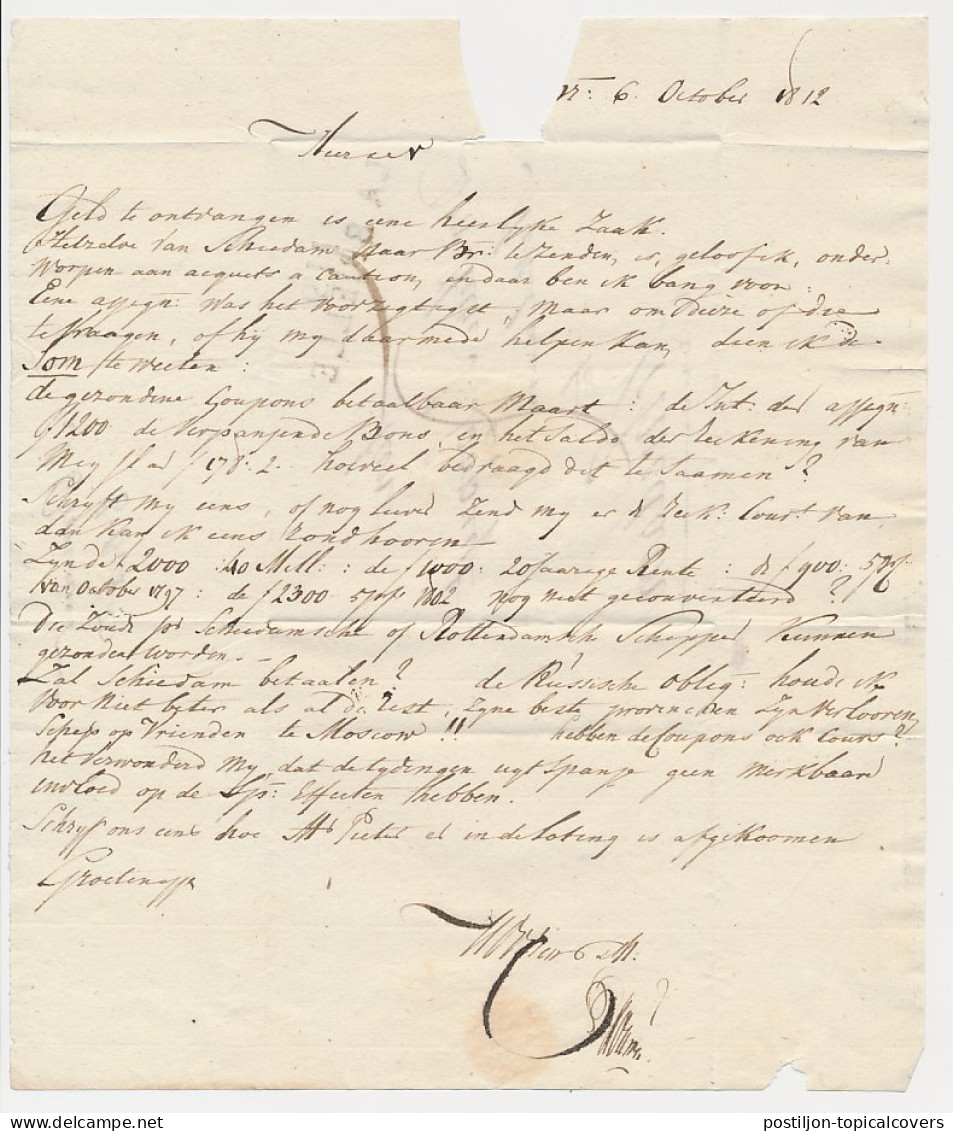 6. October 1812
Geld te ontvangen is eene heerlyke Zaak.
Hetzelve van Schiedam Naar Br: te Zenden, is, geloof ik, onder-
worpen aan acquits a caution, en daar ben ik bang voor:
Eene assegn: was het voorzigtigst, Maar om Dieze op die
te vraagen, of hy my daarmede helpen kan, dien ik de
Som te weeten:
de gezondene Coupons betaalbaar Maart: de Int: der assegn:
f1200 de Verpanjende Bons, en het Saldo der Reekening van
Mey ad f178:2. hoeveel bedraagd dit te Saamen?
Schryft My eens, of nog liever Zend my er d Reek: Cour:t van
dan kan ik eens rondhooren
Zyn de f2000 Mill: de f1000: 20 Jaarige Rente: d f900:
van October 1797: de f2300 1802 nog niet geconverteerd?
Die Zoude Schiedamsche of Rotterdamsche Schipper Kunnen
gezonden worden. –
Zal Schiedam betaalen? de Russische Oblig: houde ik
voor Niet beter als al de rest, Zyne beste provincien Zyn verlooren,
op Vrienden te Moscow!! hebben de Coupons ook Cours?
het verwonderd My, dat de tydingen uyt Spanje geen merkbaar
invloed op de Sp: Effecten hebben.
Schryf ons eens hoe Pieter er in de Loting is afgekoomen
postiljon-topicalcovers